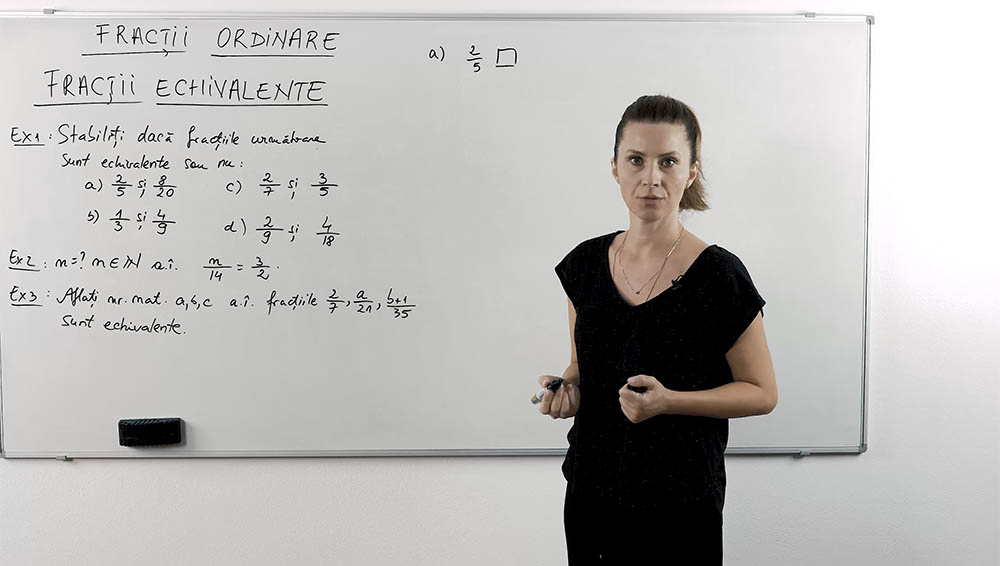 FRACȚII ORDINARE
FRACȚII ECHIVALENTE
Ex1: Stabiliți dacă fracțiile următoare
sunt echivalente sau nu:
a) 2/5 și 8/20 c) 2/7 și 3/5
b) 1/3 și 4/9 d) 2/9 și 4/18
Ex2: n=? n∈ℕ a.î. n/14 = 3/2.
Ex3: Aflați nr. nat. a,b,c a.î. fracțiile 2/7, a/21, b+1/35
sunt echivalente.
a) 2/5 □